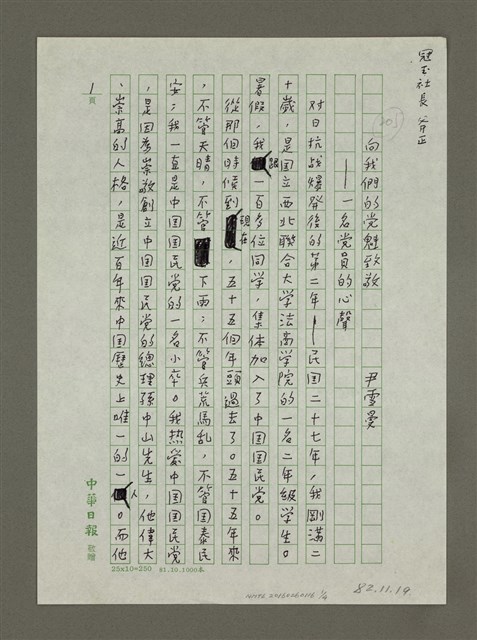 冠玉社長 斧正
向我們的党魁致敬
——一名党員的心聲
尹雪曼
对日抗战爆発後的第二年——民国二十七年，我剛満二
十歲，是国立西北聯合大学法商学院的一名二年級学生。
暑假，我跟一百多位同学，集体加入了中国国民党。
從那個時候到現在，五十五個年頭過去了。五十五年來
，不管天晴，不管下雨；不管兵荒馬乱，不管国泰民
安；我一直是中国国民党的一名小卒。我热爱中国国民党
，是因為崇敬創立中国国民党的總理孫中山先生，他偉大
、崇高的人格，是近百年來中国歷史上唯一的一人。而他
1頁
中華日報 敬贈
25x10=250 81.10.1000本
82.11.19